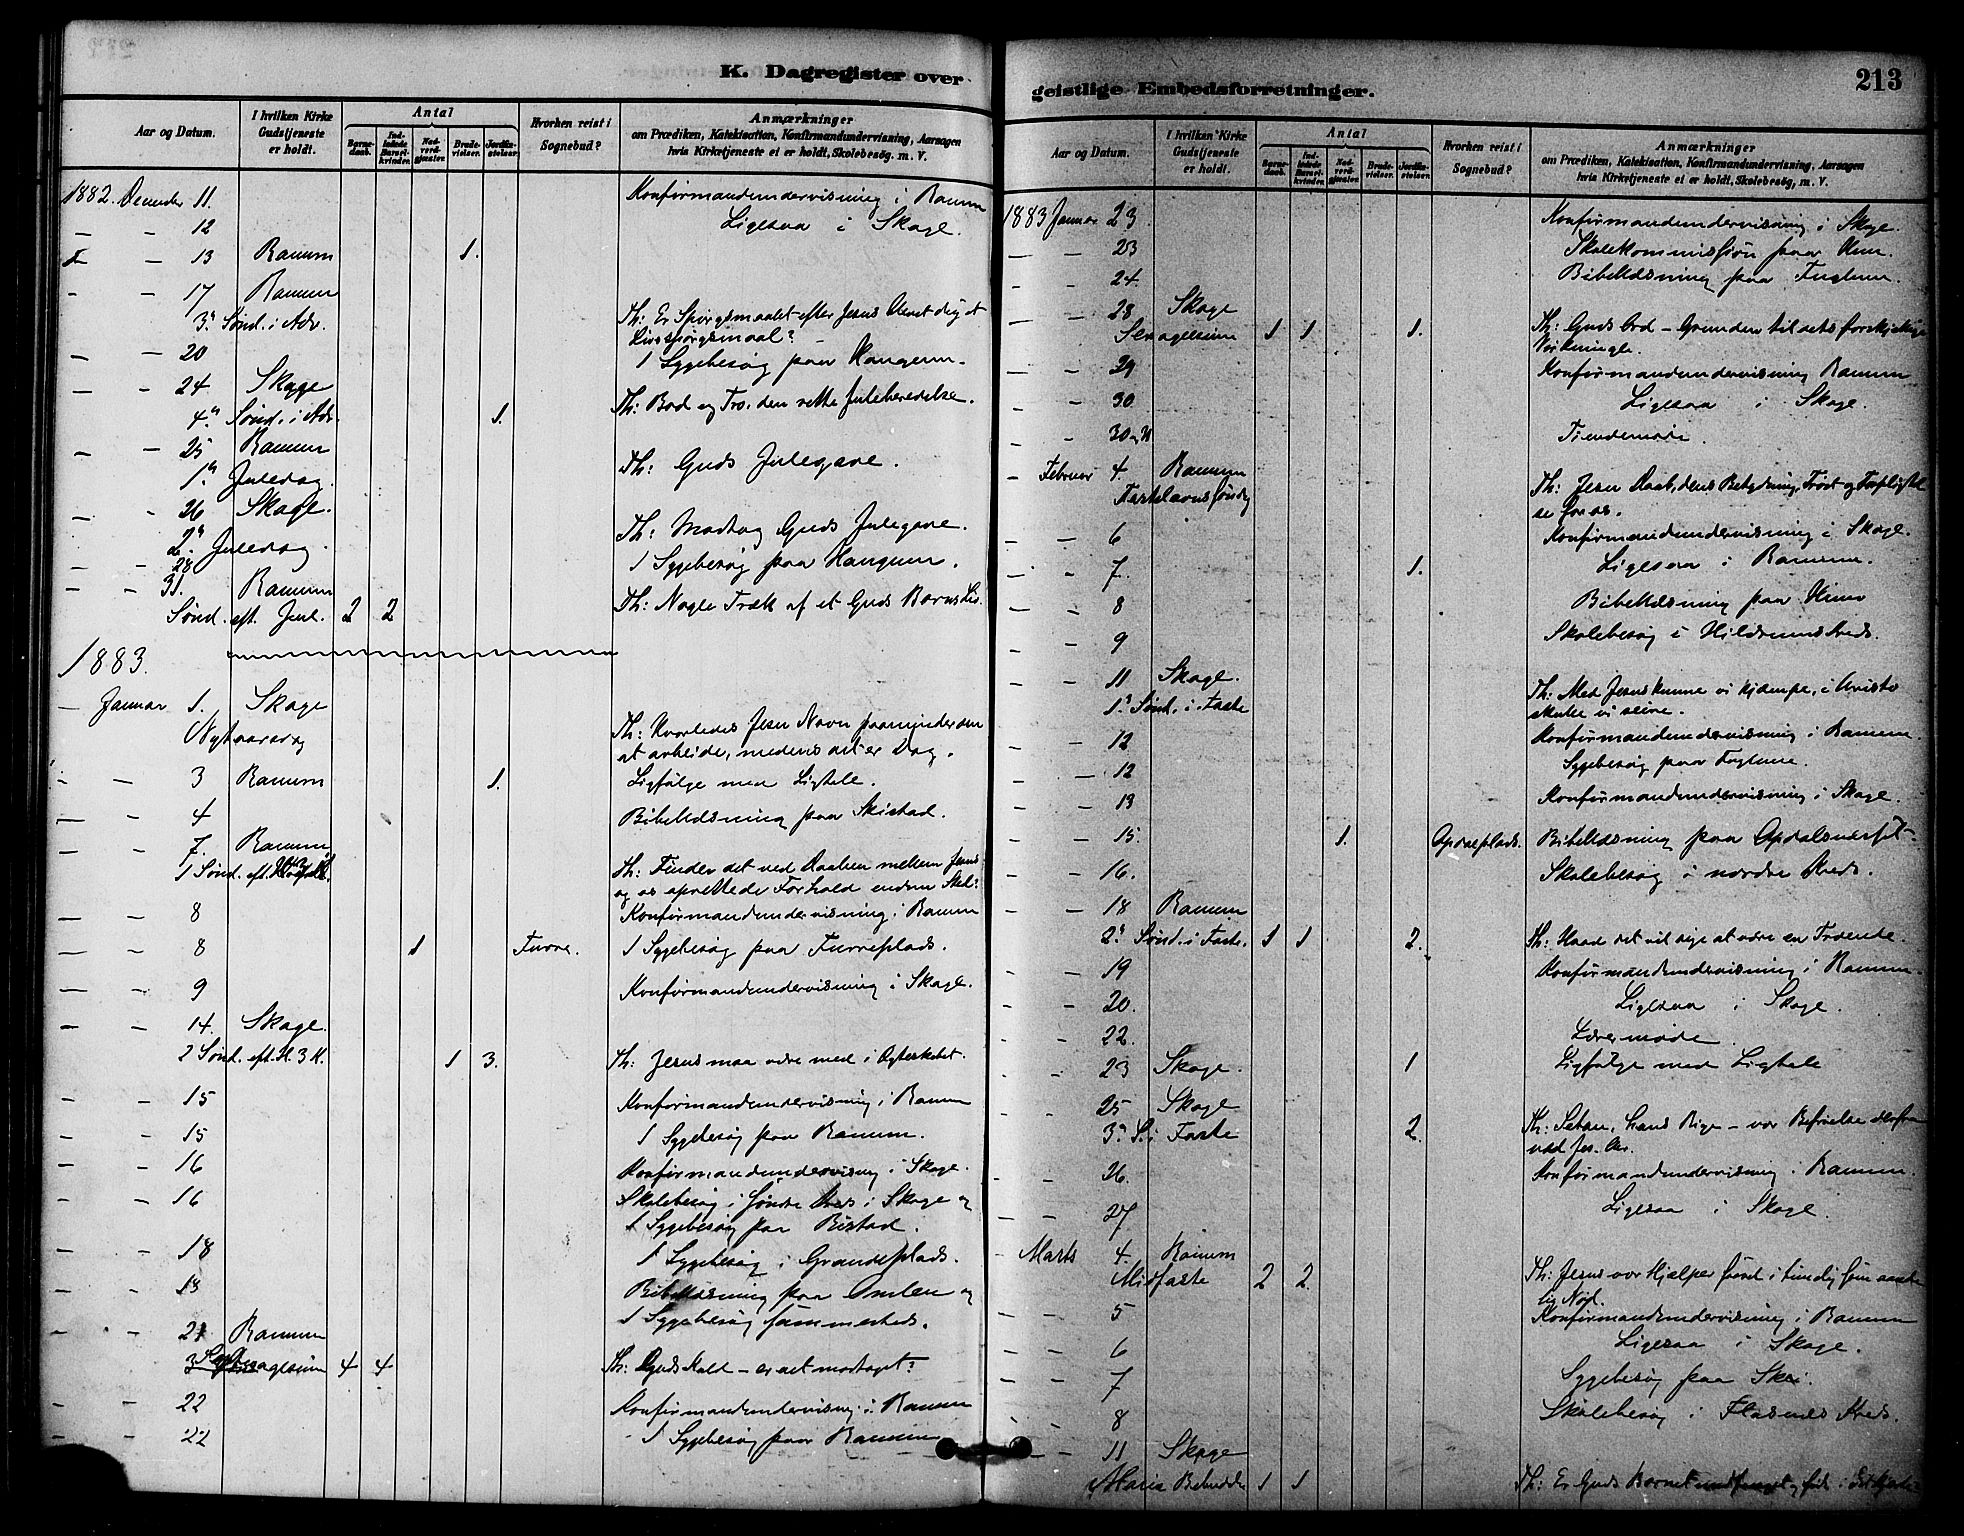 K. Dagregister over
Aar og Datum.
I hvilken Kirke Gudstjeneste er holdt.
Antal
Barnedaab.
Indledede Barselkvinder.
Nadverdgjæster.
Brudevielser.
Jordfæstelser.
Hvorhen reist i Sognebud?
Anmærkninger
om Prædiken, Katekisation, Konfirmandundervisning, Aarsagen
hvis Kirketjeneste ei er holdt, Skolebesøg. m. V.
1882. December 11. Konfirmandundervisning i Ranum
— — 12 Ligesaa i Skage.
— 13 Ranum 1.
— — 17 Ranum
3. Sønd. i Adv. Th: Er Spørgsmaalet efter Jesus blevet dig et
Livsspørgsmaal?
— — 20 1 Sygebesøg paa
— — 24 Skage Th: Bod og Tro, den rette Juleberedelse.
4. Sønd. i Adv. 1.
— — 25 Ranum
1. Juledag. Th: Guds Julegave.
— — 26 Skage.
2. Juledag. Th: Modtag Guds Julegave.
28 1 Sygebesøg paa
— — 31. Ranum
Sønd. eft. Jul. 2 2 Th: Nogle Træk af et Guds Barns Liv.
1883.
— Januar 1. Skage
Nytaarsdag Th: Hvorledes Jesu Navn paaminder om
at arbeide, medens det er Dag.
— — 3 Ranum 1. Ligfølge med Ligtale.
— — 4 Bibellæsning paa Skistad.
— — 7. Ranum
1 Sønd. eft. Th: Finder det ved Daaben mellem Jesus
og os oprettede Forhold endnu Sted?
— — 8 Konfirmandundervisning i Ranum
— — 8 1 Furre. 1 Sygebesøg paa Furreplads.
— — 9 Konfirmandundervisning i Skage.
— — 14. Skage.
2 Sønd. eft. H. 3 K. 1 3. Th: Jesus maa være med i Ægteskabet.
— — 15 Konfirmandundervisning i Ranum
— — 15 1 Sygebesøg paa Ranum.
— — 16 Konfirmandundervisning i Skage.
— — 16 Skolebesøg i Søndre Kreds i Skage og
1 Sygebesøg paa
— — 18 1 Sygebesøg i Grandeplads.
— — 18 Bibellæsning paa Omlen og
1 Sygebesøg sammesteds.
— — 21 Ranum
Septuagesima 4 4 Th: Guds Kald — er det modtaget?
— — 22 Konfirmandundervisning i Ranum
— — 22 1 Sygebesøg paa Ranum
geistlige Embedsforretninger.
213
Aar og Datum.
I hvilken Kirke Gudstjeneste er holdt.
Antal
Barnedaab.
Indledede Barselkvinder.
Nadverdgjæster.
Brudevielser.
Jordfæstelser.
Hvorhen reist i Sognebud?
Anmærkninger
om Prædiken, Katekisation, Konfirmandundervisning, Aarsagen
hvis Kirketjeneste ei er holdt, Skolebesøg, m. V.
1883 Januar 23 Konfirmandundervisning i Skage.
— — 23 Skolekommission paa Hun.
— — 24 Bibellæsning paa Fuglum.
— — 28 Skage
Sexagesima 1 1 1. Th: Guds Ord — Grunden til dets forskjellige
— — 29 Konfirmandundervisning Ranum
— — 30 Ligesaa i Skage.
— 30 og Tiendemøde.
— Februar 4. Ranum
Fastelavnssøndag Th: Jesu Daab, dens Betydning, Trøst og Forpligtelse
for os.
— — 6 Konfirmandundervisning i Skage.
— — 7. 1. Ligesaa i Ranum.
— — 8 Bibellæsning paa
— — 9 Skolebesøg i Hildremskreds.
— — 11 Skage.
1. Sønd. i Faste Th: Med Jesus kunne vi kjæmpe, i Christo
skulle vi seire.
— — 12 Konfirmandundervisning i Ranum.
— 12 Sygebesøg paa
— — 13 Konfirmandundervisning i Skage.
— — 15. 1. Opdalplads. Bibellæsning paa
— — 16. Skolebesøg i nordre Kreds.
— — 18 Ranum
2. Sønd. i Faste. 1 1 2. Th: Hvad det vil sige at være en Troende.
— — 19 Konfirmandundervisning i Ranum.
— — 20. Ligesaa i Skage.
— — 22. Lærermøde.
— — 23 Skage. 1 Ligfølge med Ligtale
— — 25 Skage
3. S. i Faste 2. Th: Satan, hans Rige — vor Befrielse derfra
ved Jes. Chr.
— — 26. Konfirmandundervisning i Ranum.
— — 27 Ligesaa i Skage.
— Marts 4. Ranum
Midfaste 2 2. Th: Jesus vor Hjælper saavel i timelig som aandelig
Nød.
— — 5 Konfirmandundervisning i Ranum
— — 6 Ligesaa i Skage.
— — 7 Sygebesøg paa
— — 8 Skolebesøg i Flasnes Kreds.
— — 11 Skage
Mariæ Bebudelse 1 1 Th: Er Guds Barnet